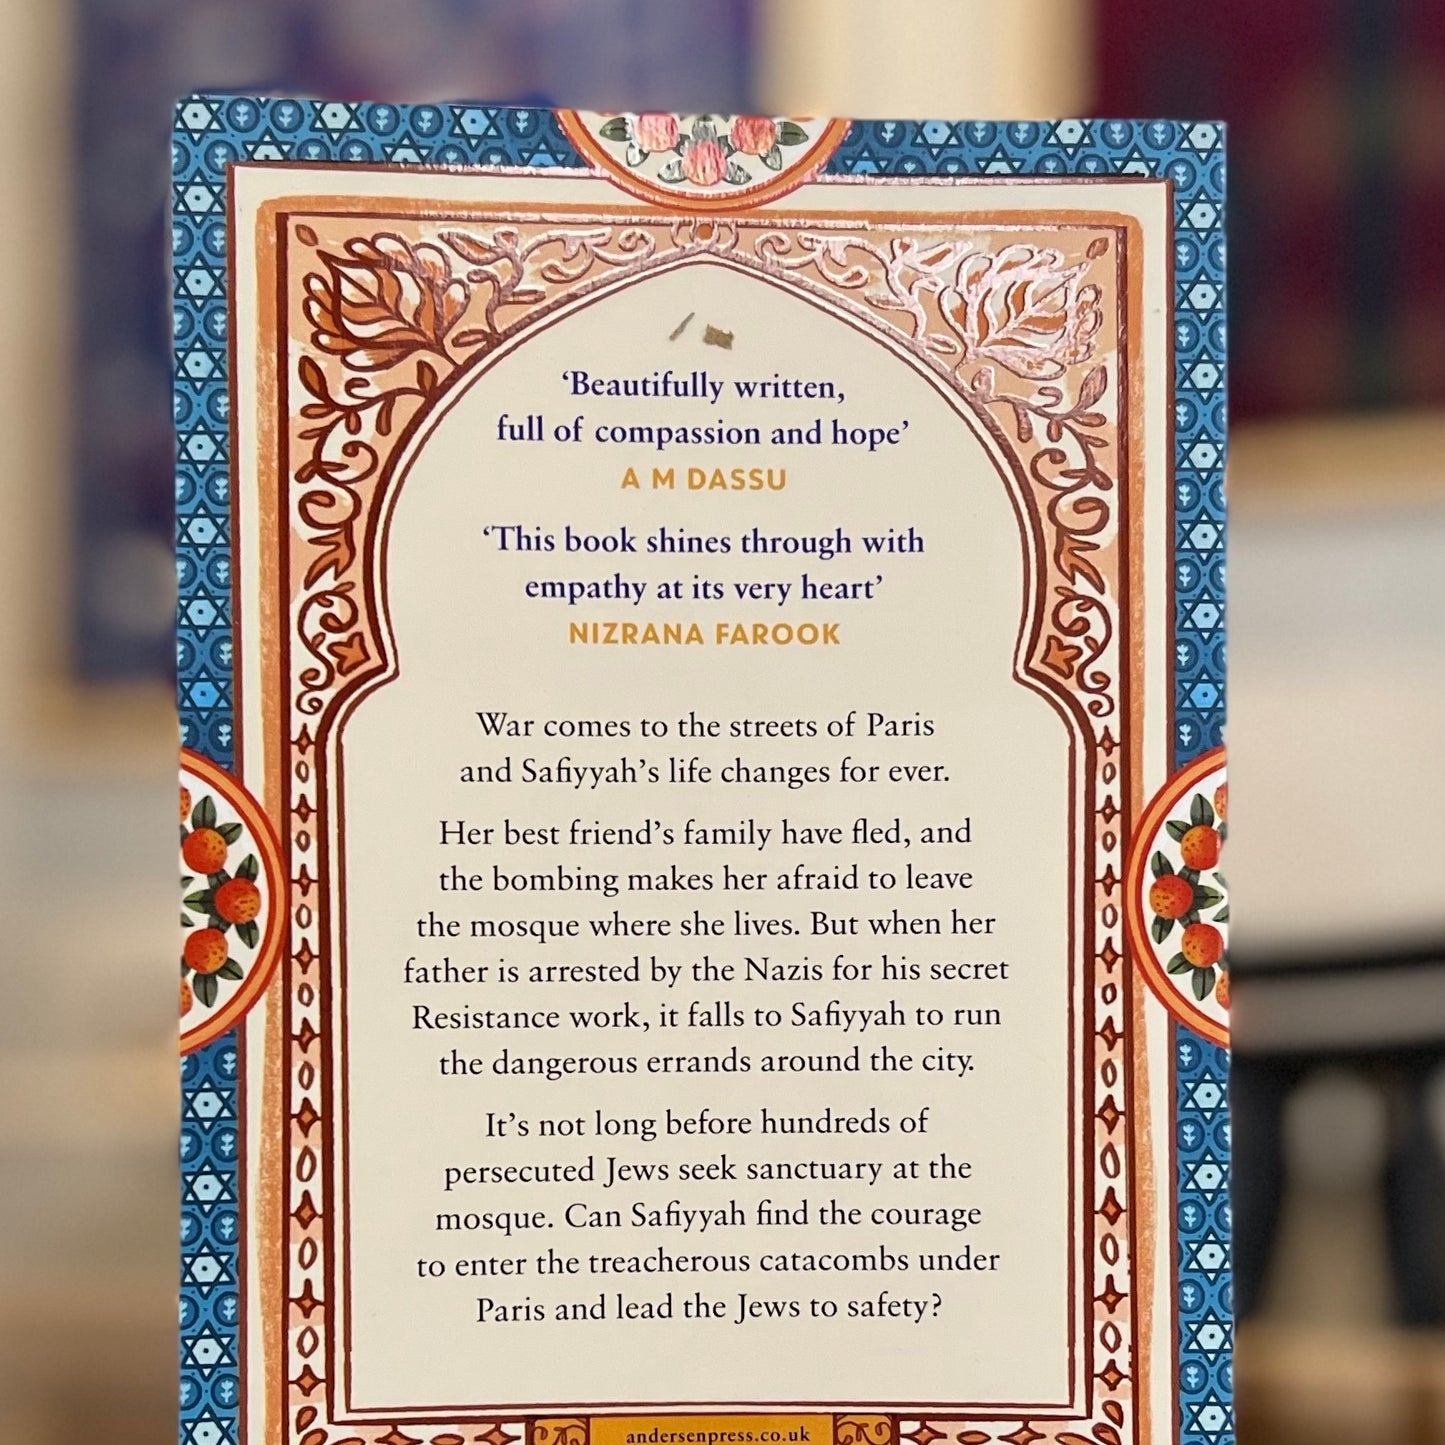 ‘Beautifully written,
full of compassion and hope’
A M DASSU
‘This book shines through with
empathy at its very heart’
NIZRANA FAROOK
War comes to the streets of Paris
and Safiyyah’s life changes for ever.
Her best friend’s family have fled, and
the bombing makes her afraid to leave
the mosque where she lives. But when her
father is arrested by the Nazis for his secret
Resistance work, it falls to Safiyyah to run
the dangerous errands around the city.
It’s not long before hundreds of
persecuted Jews seek sanctuary at the
mosque. Can Safiyyah find the courage
to enter the treacherous catacombs under
Paris and lead the Jews to safety?
andersenpress.co.uk